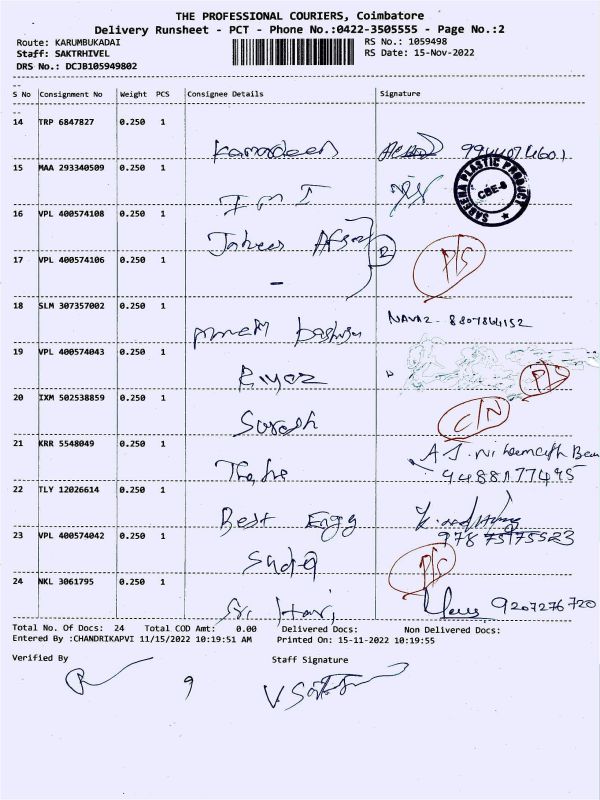 THE PROFESSIONAL COURIERS, Coimbatore
Delivery Runsheet - PCT - Phone No.:0422-3505555 - Page No.:2
Route: KARUMBUKADAI RS No.: 1059498
Staff: SAKTRHIVEL RS Date: 15-Nov-2022
DRS No.: DCJB105949802
S No Consignment No Weight PCS Consignee Details Signature
14 TRP 6847827 0.250 1
Kamardeen
15 MAA 293340509 0.250 1
SABEENA PLASTIC PRODUCT
CBE-8
F M I
16 VPL 400574108 0.250 1
Afsar
17 VPL 400574106 0.250 1
P/S
-
18 SLM 307357002 0.250 1
NAVAZ - 8807864152
19 VPL 400574043 0.250 1
Riyaz
20 IXM 502538859 0.250 1
C/N
Suresh
21 KRR 5548049 0.250 1
9488177495
22 TLY 12026614 0.250 1
Best Engg
23 VPL 400574042 0.250 1
P/S
Sadiq
24 NKL 3061795 0.250 1
Sri Hari 9207276720
Total No. Of Docs: 24 Total COD Amt: 0.00 Delivered Docs: Non Delivered Docs:
Entered By :CHANDRIKAPVI 11/15/2022 10:19:51 AM Printed On: 15-11-2022 10:19:55
Verified By Staff Signature
9